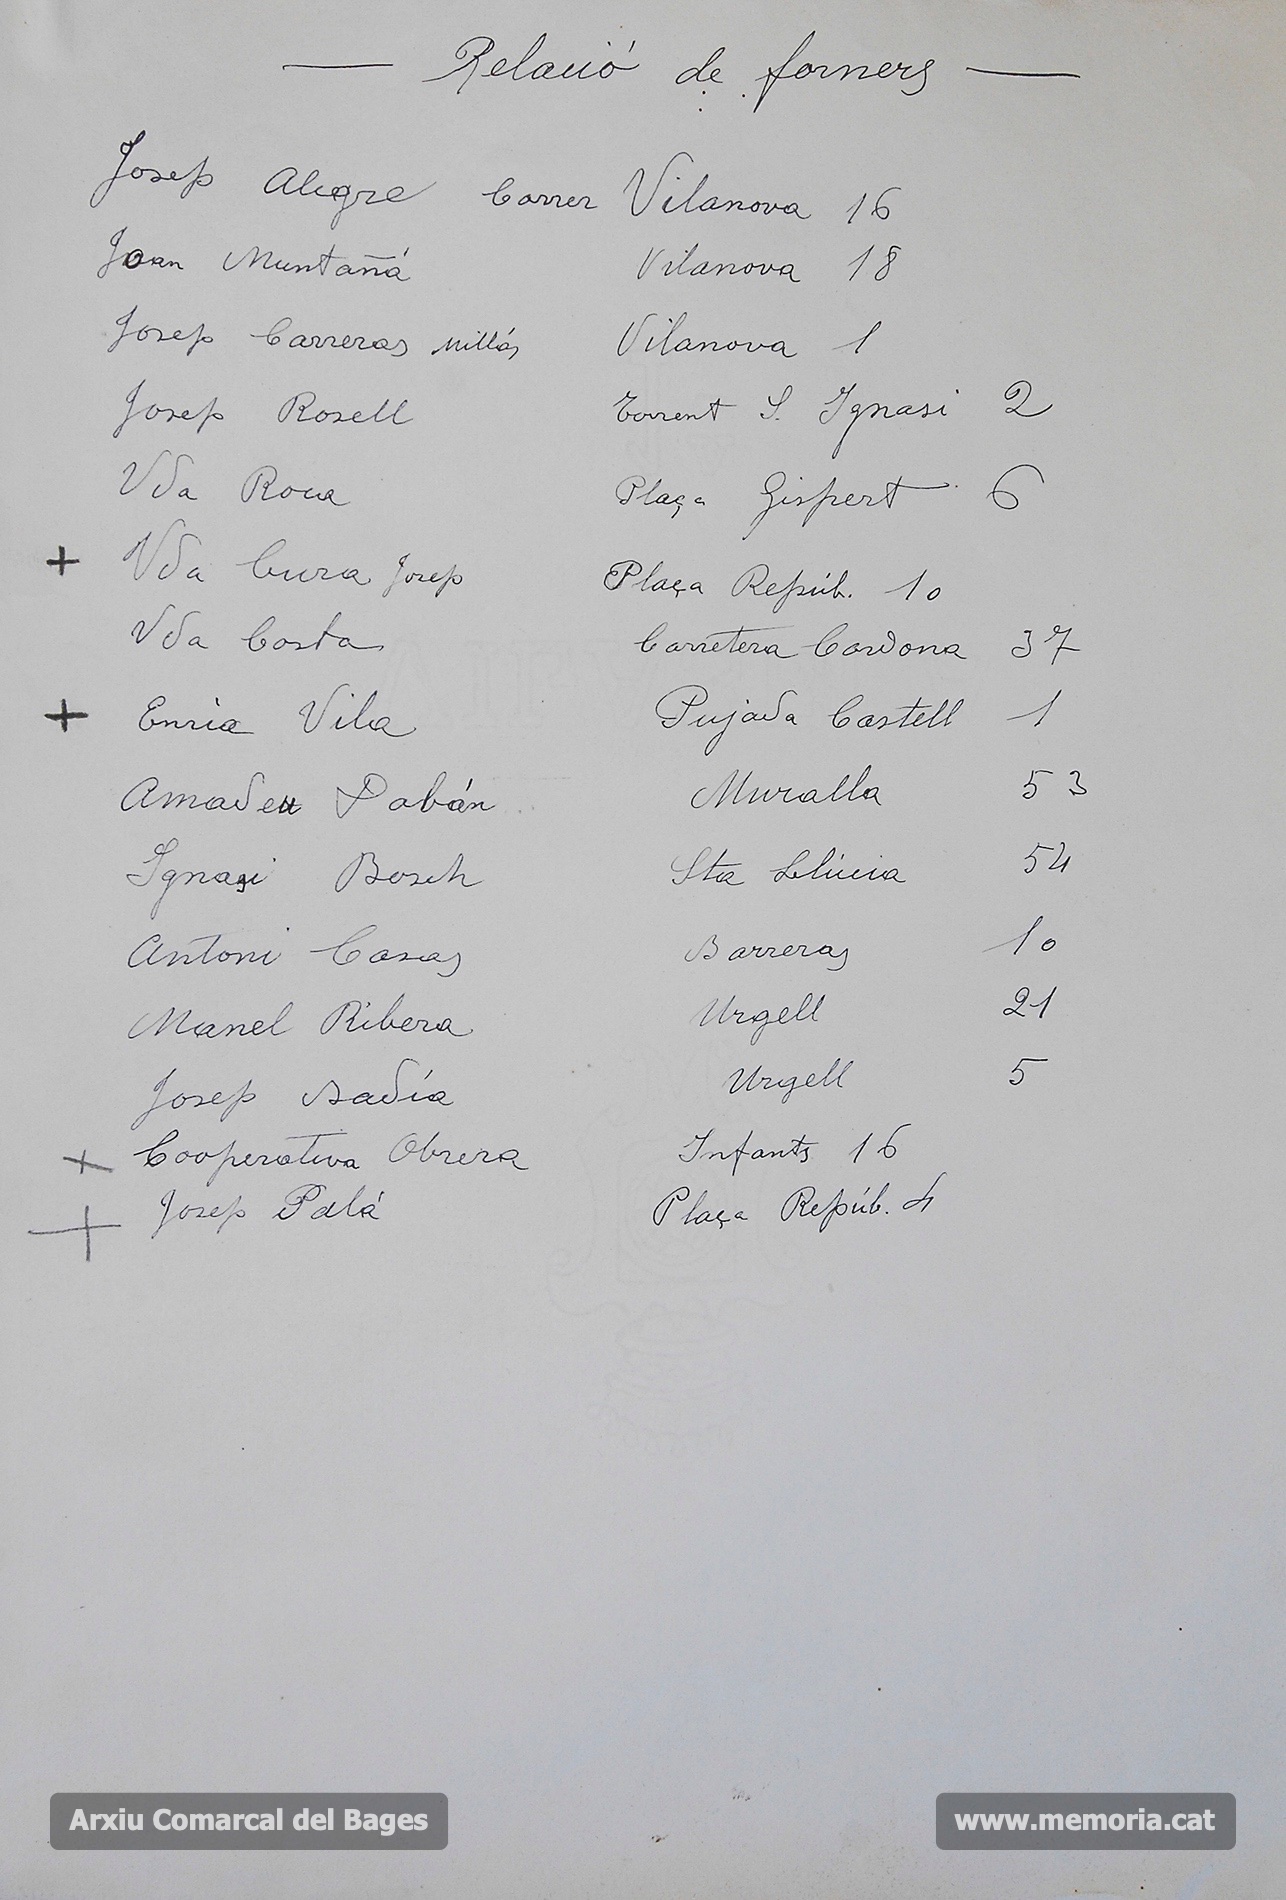 — Relació de forners —
Josep Alegre Carrer Vilanova 16
Joan Muntañá Vilanova 18
Josep Carreras Millás Vilanova 1
Josep Rosell Torrent S. Ignasi 2
Vda Roca Plaça Gispert 6
+ Vda Cura Josep Plaça Repúb. 10
Vda Costa Carretera Cardona 37
+ Enric Vila Pujada Castell 1
Amadeu Pabán Muralla 53
Ignasi Bosch Sta Llúcia 54
Antoni Casas Barreras 10
Manel Ribera Urgell 21
Josep Badía Urgell 5
+ Cooperativa Obrera Infants 16
+ Josep Palá Plaça Repúb. 4
Arxiu Comarcal del Bages
www.memoria.cat